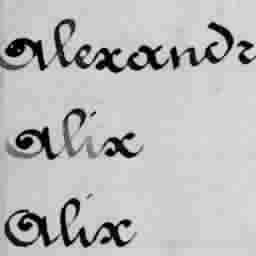 Alexandr
Alix
Alix